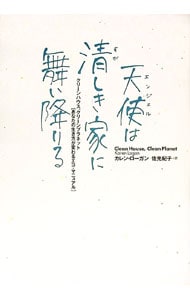 エンジェル
天使は
すが
清しき家に
舞い降りる
クリーンハウス、クリーンプラネット
[あなたの生き方が変わるエコ・マニュアル]
Clean House, Clean Planet
Karen Logan
カレン・ローガン 佐光紀子=訳